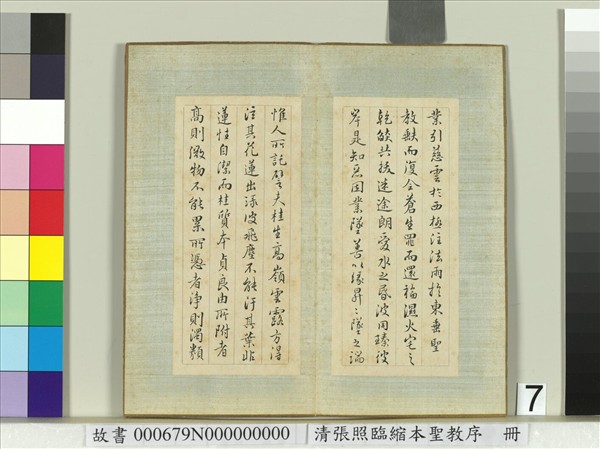 業引慈雲於西極注法雨於東垂聖
教缺而復全蒼生罪而還福濕火宅之
乾燄共拔迷途朗愛水之昏波同臻彼
岸是知惡因業墜善以緣昇〻墜之端
惟人所託譬夫桂生高嶺雲露方得
泫其花蓮出淥波飛塵不能汙其葉非
蓮性自潔而桂質本貞良由所附者
高則微物不能累所憑者淨則濁類
7
故書 000679N000000000 清張照臨縮本聖教序 冊